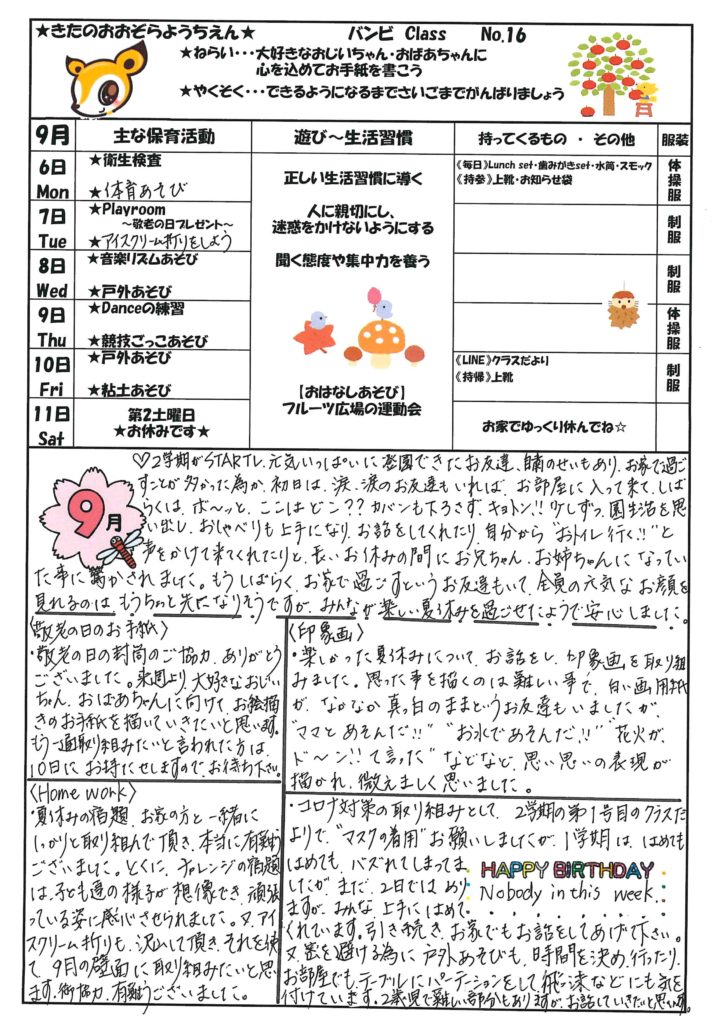 ★きたのおおぞらようちえん★ バンビ Class No.16
★ねらい・・・大好きなおじいちゃん・おばあちゃんに
心を込めてお手紙を書こう
★やくそく・・・できるようになるまでさいごまでがんばりましょう
9月 主な保育活動 遊び～生活習慣 持ってくるもの ・ その他 服装
6日 Mon
★衛生検査
★体育あそび
正しい生活習慣に導く
《毎日》Lunch set・歯みがきset・水筒・スモック
《持参》上靴・お知らせ袋
体操服
7日 Tue
★Playroom
～敬老の日プレゼント～
★アイスクリーム折りをしよう
人に親切にし、
迷惑をかけないようにする
制服
8日 Wed
★音楽リズムあそび
★戸外あそび
聞く態度や集中力を養う
制服
9日 Thu
★Danceの練習
★競技ごっこあそび
体操服
10日 Fri
★戸外あそび
★粘土あそび
【おはなしあそび】
フルーツ広場の運動会
《LINE》クラスだより
《持帰》上靴
制服
11日 Sat
第2土曜日
★お休みです★
お家でゆっくり休んでね☆
9月
♡2学期がSTARTし、元気いっぱいに登園できたお友達、自粛のせいもあり、お家で過ご
すことが多かった為か、初日は、涙、涙のお友達もいれば、お部屋に入って来て、しば
らくは、ボ～ッと、ここはどこ？？カバンも下ろさず、キョトン!!少しずつ、園生活を思
い出し、おしゃべりも上手になり、お話をしてくれたり、自分から“おトイレ行く!!”と
声をかけて来てくれたりと、長いお休みの間にお兄ちゃん、お姉ちゃんになってい
た事に驚かされました。もうしばらく、お家で過ごすというお友達もいて、全員の元気なお顔を
見れるのは、もうちょっと先になりそうですが、みんなが楽しい夏休みを過ごせたようで安心しました。
〈敬老の日のお手紙〉
・敬老の日の封筒のご協力、ありがとう
ございました。来週より、大好きなおじい
ちゃん、おばあちゃんに向けて、お絵描
きのお手紙を描いていきたいと思います。
もう一通取り組みたいと言われた方は、
10日にお持たせしますので、お待ち下さい。
〈印象画〉
・楽しかった夏休みについて、お話をし、印象画を取り組
みました。思った事を描くのは難しい事で、白い画用紙
が、なかなか真っ白のままというお友達もいましたが、
“ママとあそんだ!!” “お水であそんだ!!” “花火が、
ド～ン!!て言った”などなど、思い思いの表現が
描かれ、微笑ましく思いました。
〈Home work〉
・夏休みの宿題、お家の方と一緒に
しっかりと取り組んで頂き、本当に有難う
ございました。とくに、チャレンジの宿題
は、子ども達の様子が想像でき、頑張
っている姿に感心させられました。又、アイ
スクリーム折りも、沢山して頂き、それを使っ
て、9月の壁面に取り組みたいと思い
ます。御協力、有難うございました。
・コロナ対策の取り組みとして、2学期の第1号目のクラスだ
よりで、“マスクの着用”お願いしましたが、1学期は、はめても
はめても、バズれてしまってま
したが、まだ、2日ではあり
ますが、みんな、上手にはめて
くれています。引き続き、お家でもお話をしてあげて下さい。
又、密を避ける為に、戸外あそびも、時間を決め、行ったり、
お部屋でも、テーブルにパーテーションをして、飛沫などにも気を
付けています。2歳児で難しい部分もありますが、お話していきたいと思います。
HAPPY BIRTHDAY
Nobody in this week.